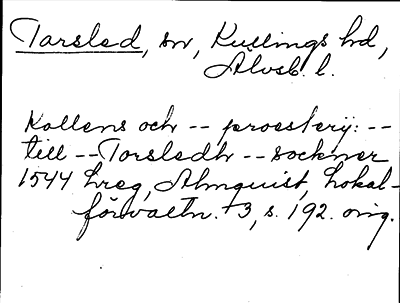 Tarsled, sn, Kullings hd,
Älvsb. l.
Kollens och -- proesterij: --
till -- Torsledh -- sockner
1544 hreg, Almquist, Lokal-
förvaltn. +3, s. 192. orig.